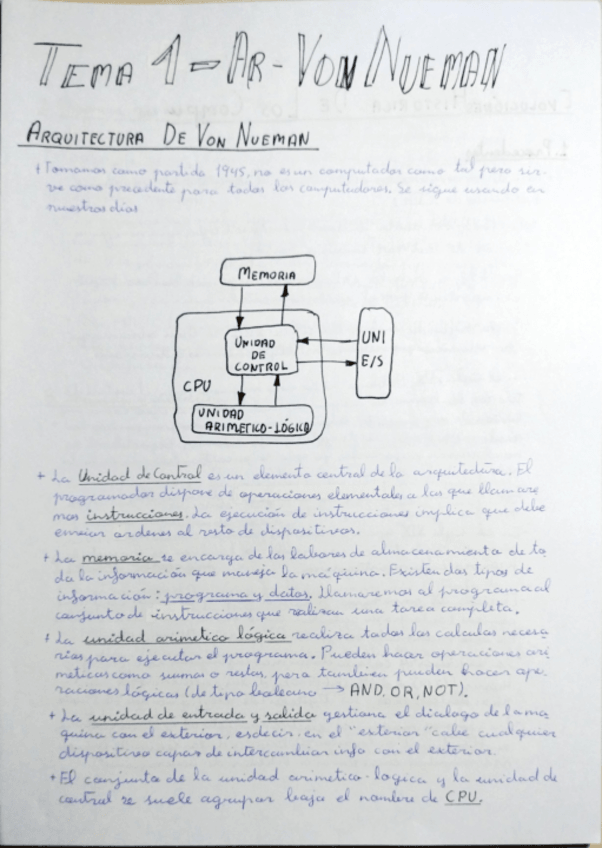 TEMA 1 = AR - VON NUEMAN
ARQUITECTURA DE VON NUEMAN
+ Tomamos como partida 1945, no es un computador como tal pero sir-
ve como precedente para todos los computadores. Se sigue usando en
nuestros dias
MEMORIA
UNIDAD
DE
CONTROL
UNI
E/S
CPU
UNIDAD
ARIMETICO-LÓGICA
+ La Unidad de Control es un elemento central de la arquitectura. El
programador dispone de operaciones elementales a las que llamare
mos instrucciones. La ejecución de instrucciones implica que debe
enviar ordenes al resto de dispositivos.
+ La memoria se encarga de las labores de almacenamiento de to
da la información que maneja la máquina. Existen dos tipos de
información: programa y datos. Llamaremos al programa al
conjunto de instrucciones que realizan una tarea completa.
+ La unidad arimetico lógica realiza todos los calculos necesa
rios para ejecutar el programa. Pueden hacer operaciones ari
meticas como sumas o restas, pero tambien pueden hacer ope-
raciones lógicas (de tipo booleano → AND, OR, NOT).
+ La unidad de entrada y salida gestiona el dialogo de la ma
quina con el exterior, es decir, en el "exterior" cabe cualquier
dispositivo capaz de intercambiar info con el exterior.
+ El conjunto de la unidad arimetico-logica y la unidad de
control se suele agrupar bajo el nombre de CPU.